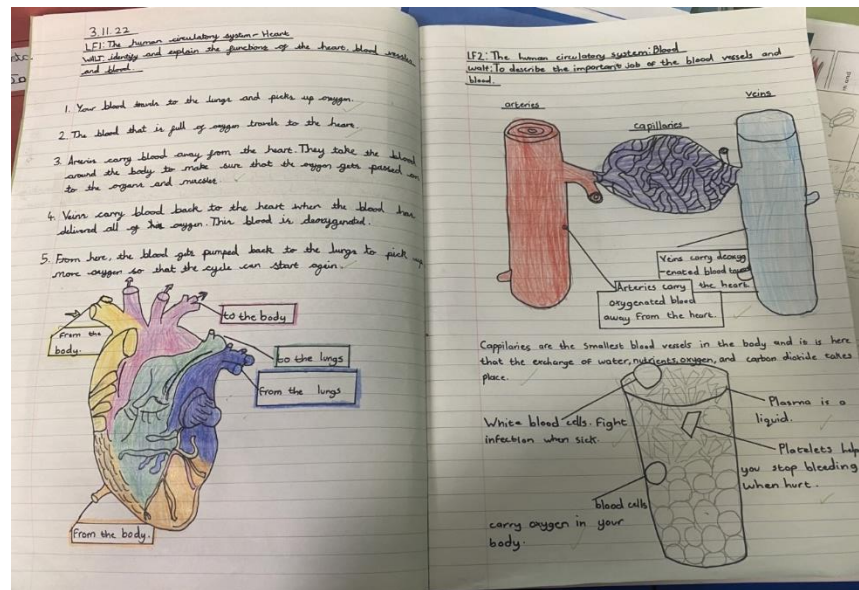 3.11.22
LF1: The human circulatory system - Heart
WALT: identify and explain the functions of the heart, blood vessels
and blood.
1. Your blood travels to the lungs and picks up oxygen.
2. The blood that is full of oxygen travels to the heart.
3. Arteries carry blood away from the heart. They take the blood
around the body to make sure that the oxygen gets passed on
to the organs and muscles.
4. Veins carry blood back to the heart when the blood has
delivered all of its oxygen. This blood is deoxygenated.
5. From here, the blood gets pumped back to the lungs to pick up
more oxygen so that the cycle can start again.
to the body
From the
body.
to the lungs
from the lungs
from the body.
LF2: The human circulatory system: Blood
walt: To describe the important job of the blood vessels and
blood.
arteries
capillaries
veins
Veins carry deoxyg
-enated blood towards
the heart.
Arteries carry
oxygenated blood
away from the heart.
Cappilaries are the smallest blood vessels in the body and is is here
that the exchange of water, nutrients, oxygen, and carbon dioxide takes
place.
White blood cells. Fight
infection when sick.
Plasma is a
liquid.
Platelets help
you stop bleeding
when hurt.
blood cells
carry oxygen in your
body.